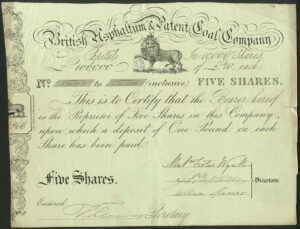 British Asphaltum & Patent Coal Company
Capital
100,000
In 10000 Shares
of £10 each
No. to (inclusive) FIVE SHARES.
This is to Certify that the Bearer hereof
is the Proprietor of Five Shares in this Company,
upon which a deposit of One Pound on each
Share has been paid.
Five Shares.
Directors.
Entered
Secretary